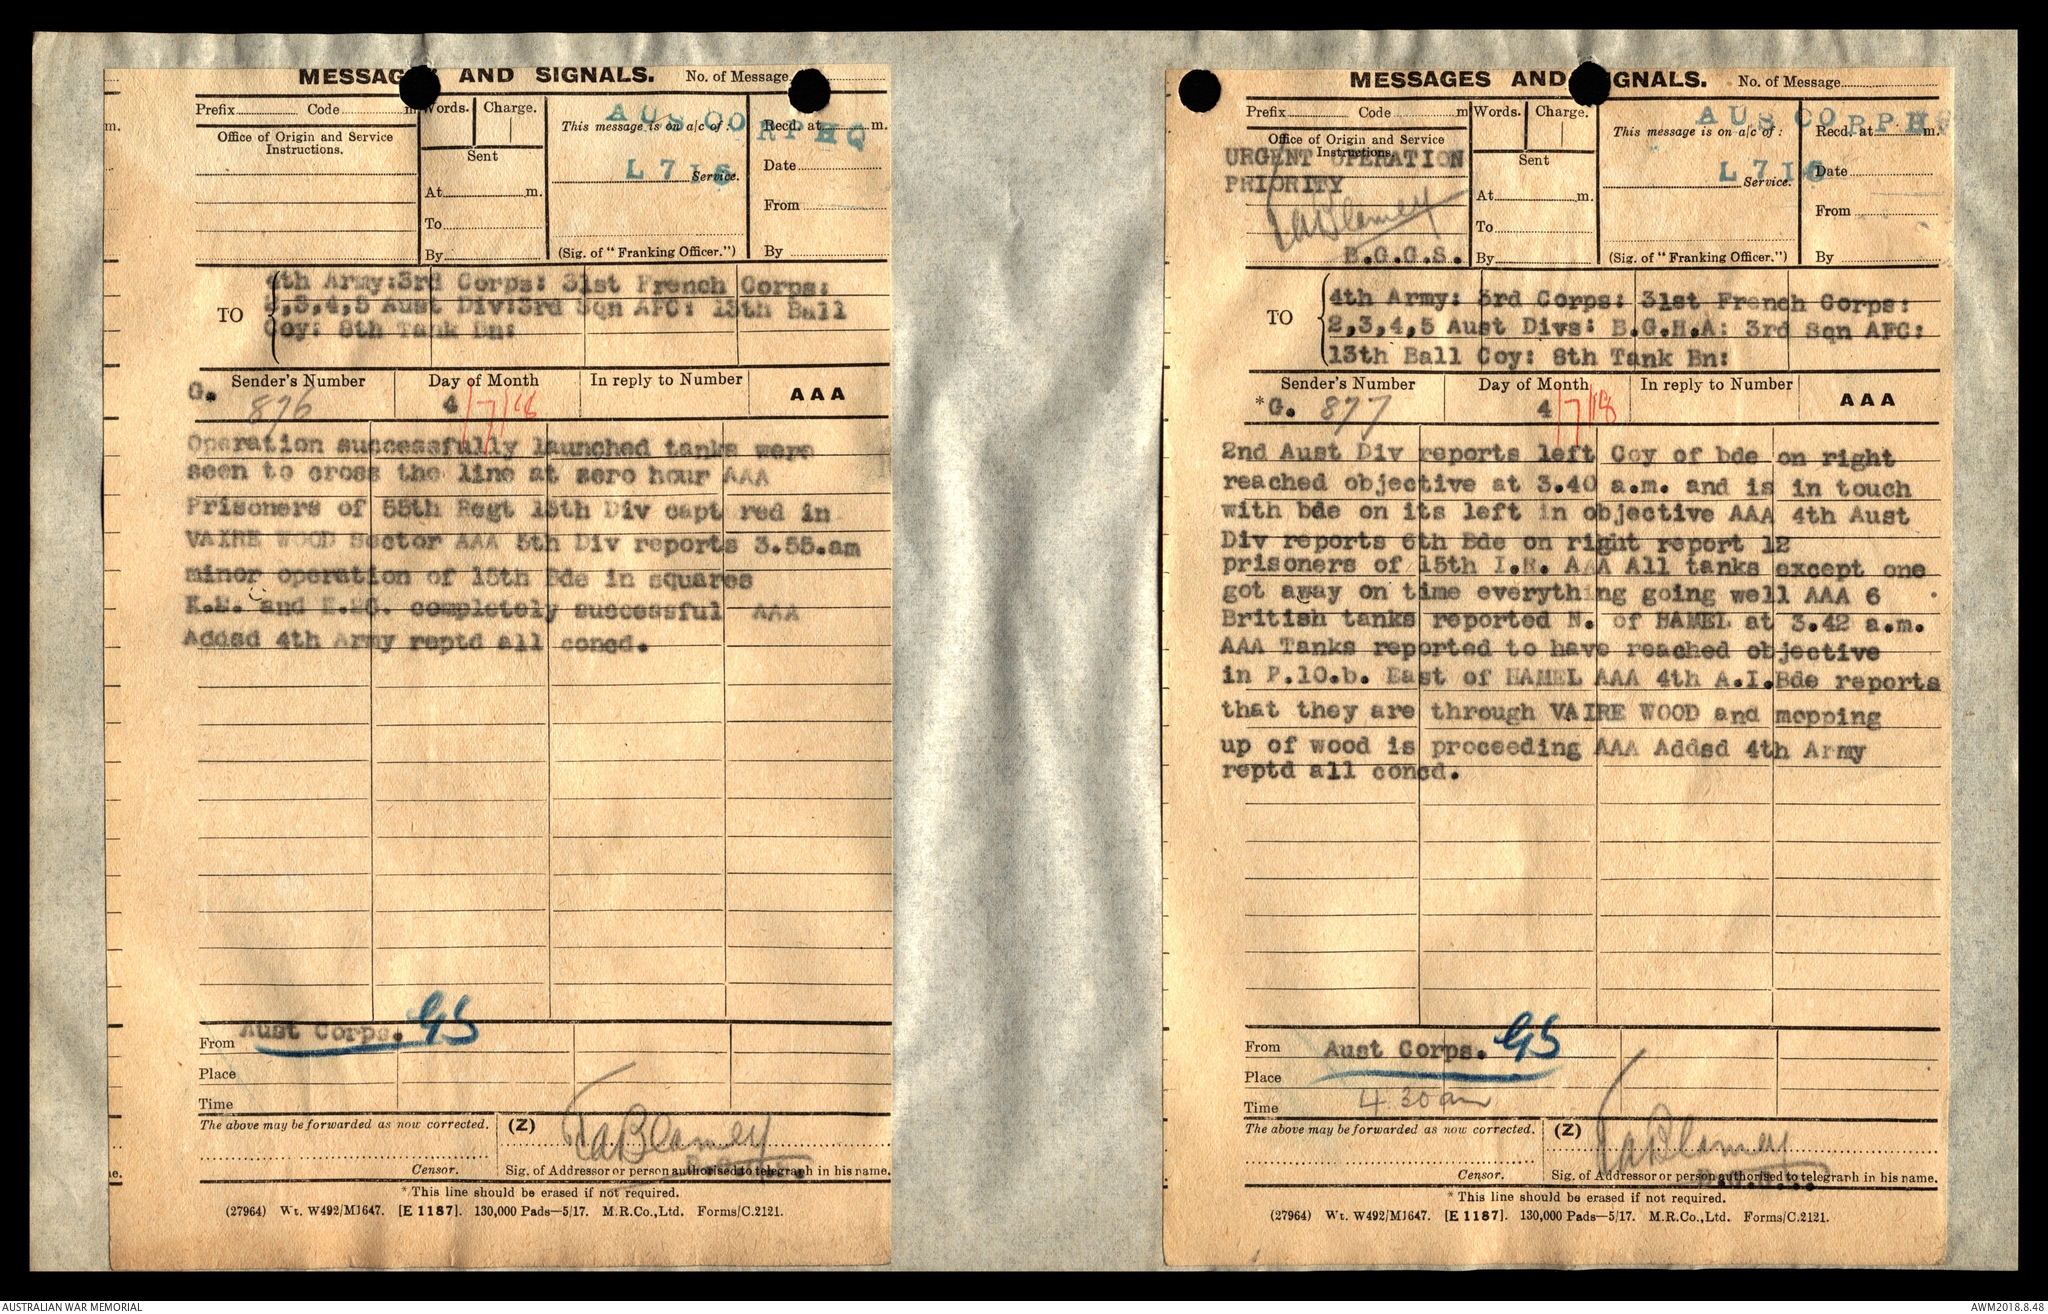 MESSAGES AND SIGNALS. No. of Message
Prefix Code m Words. Charge.
This message is on a/c of:
AUSCORPHQ
Recd. at m.
Office of Origin and Service
Instructions.
Sent
L716
Service.
Date
At m.
From
To
By
(Sig. of "Franking Officer.")
By
TO
4th Army:3rd Corps: 31st French Corps:
2,3,4,5 Aust Div:3rd Sqn AFC: 13th Ball
Coy: 8th Tank Bn:
Sender's Number Day of Month In reply to Number AAA
G. 876 4/7/18
Operation successfully launched tanks were
seen to cross the line at zero hour AAA
Prisoners of 55th Regt 15th Div capt red in
VAIRE WOOD Sector AAA 5th Div reports 3.55.am
minor operation of 15th Bde in squares
and completely successful AAA
Addsd 4th Army reptd all concd.
From Aust Corps. GS
Place
Time
The above may be forwarded as now corrected. (Z)
TaBlamey
Censor. Sig. of Addressor or person authorised to telegraph in his name.
* This line should be erased if not required.
(27964) Wt. W492/M1647. [E 1187]. 130,000 Pads—5/17. M.R.Co.,Ltd. Forms/C.2121.
MESSAGES AND SIGNALS. No. of Message
Prefix Code m Words. Charge.
This message is on a/c of:
AUSCORPHQ
Recd. at m.
Office of Origin and Service
Instructions.
URGENT OPERATION
PRIORITY
Sent
L716
Service.
Date
At m.
TaBlamey
From
To
B.G.G.S.
By
(Sig. of "Franking Officer.")
By
TO
4th Army: 3rd Corps: 31st French Corps:
2,3,4,5 Aust Divs: B.G.H.A: 3rd Sqn AFC:
13th Ball Coy: 8th Tank Bn:
Sender's Number Day of Month In reply to Number AAA
*G. 877 4/7/18
2nd Aust Div reports left Coy of bde on right
reached objective at 3.40 a.m. and is in touch
with bde on its left in objective AAA 4th Aust
Div reports 6th Bde on right report 12
prisoners of 15th I.R. AAA All tanks except one
got away on time everything going well AAA 6
British tanks reported N. of HAMEL at 3.42 a.m.
AAA Tanks reported to have reached objective
in P.10.b. East of HAMEL AAA 4th A.I.Bde reports
that they are through VAIRE WOOD and mopping
up of wood is proceeding AAA Addsd 4th Army
reptd all concd.
From Aust Corps. GS
Place
Time 4.30am
The above may be forwarded as now corrected. (Z)
TaBlamey
Censor. Sig. of Addressor or person authorised to telegraph in his name.
* This line should be erased if not required.
(27964) Wt. W492/M1647. [E 1187]. 130,000 Pads—5/17. M.R.Co.,Ltd. Forms/C.2121.
AUSTRALIAN WAR MEMORIAL
AWM2018.8.48